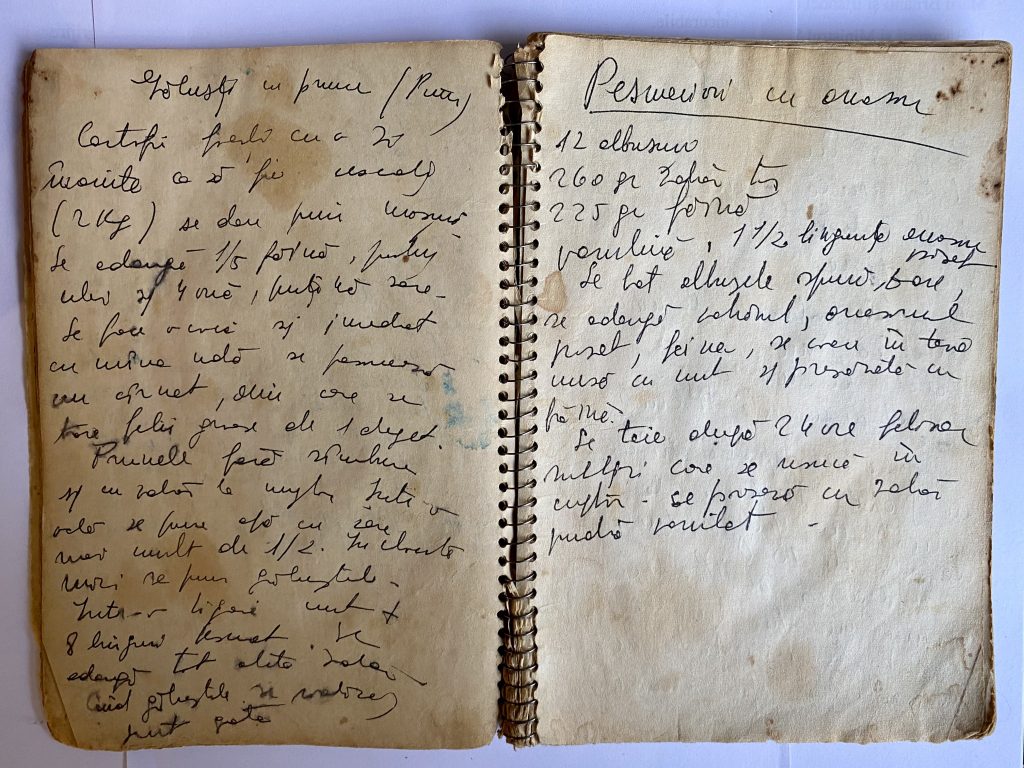 Găluști cu prune
Cartofi fierți cu o zi
înainte ca să fie uscați
(2 Kg) se dau prin mașină
Se adaugă 1/5 făină, puțin
ulei și 4 ouă, puțină sare.
Se face o cocă și imediat
cu mâna udă se formează
un cârnat, din care se
taie felii groase de 1 deget.
Prunele fără sâmbure
și cu zahăr la mijloc. Într-o
oală se pune apă cu sare
mai mult de 1/2. În clocote
mari se pun găluștele.
Într-o tigaie unt +
8 linguri pesmet. Se
adaugă tot atâta zahăr
Când găluștele se
sunt gata
Pesmecior cu anason
12 albușuri
260 gr zahăr tos
225 gr făină
vanilină, 1 1/2 lingurițe anason
pisat
Se bat albușele spumă tare,
se adaugă zahărul, anasonul
pisat, făina, se coace în tavă
unsă cu unt și presărată cu
făină.
Se taie după 24 ore felioare
subțiri care se usucă în
cuptor. se presară cu zahăr
pudră vanilat